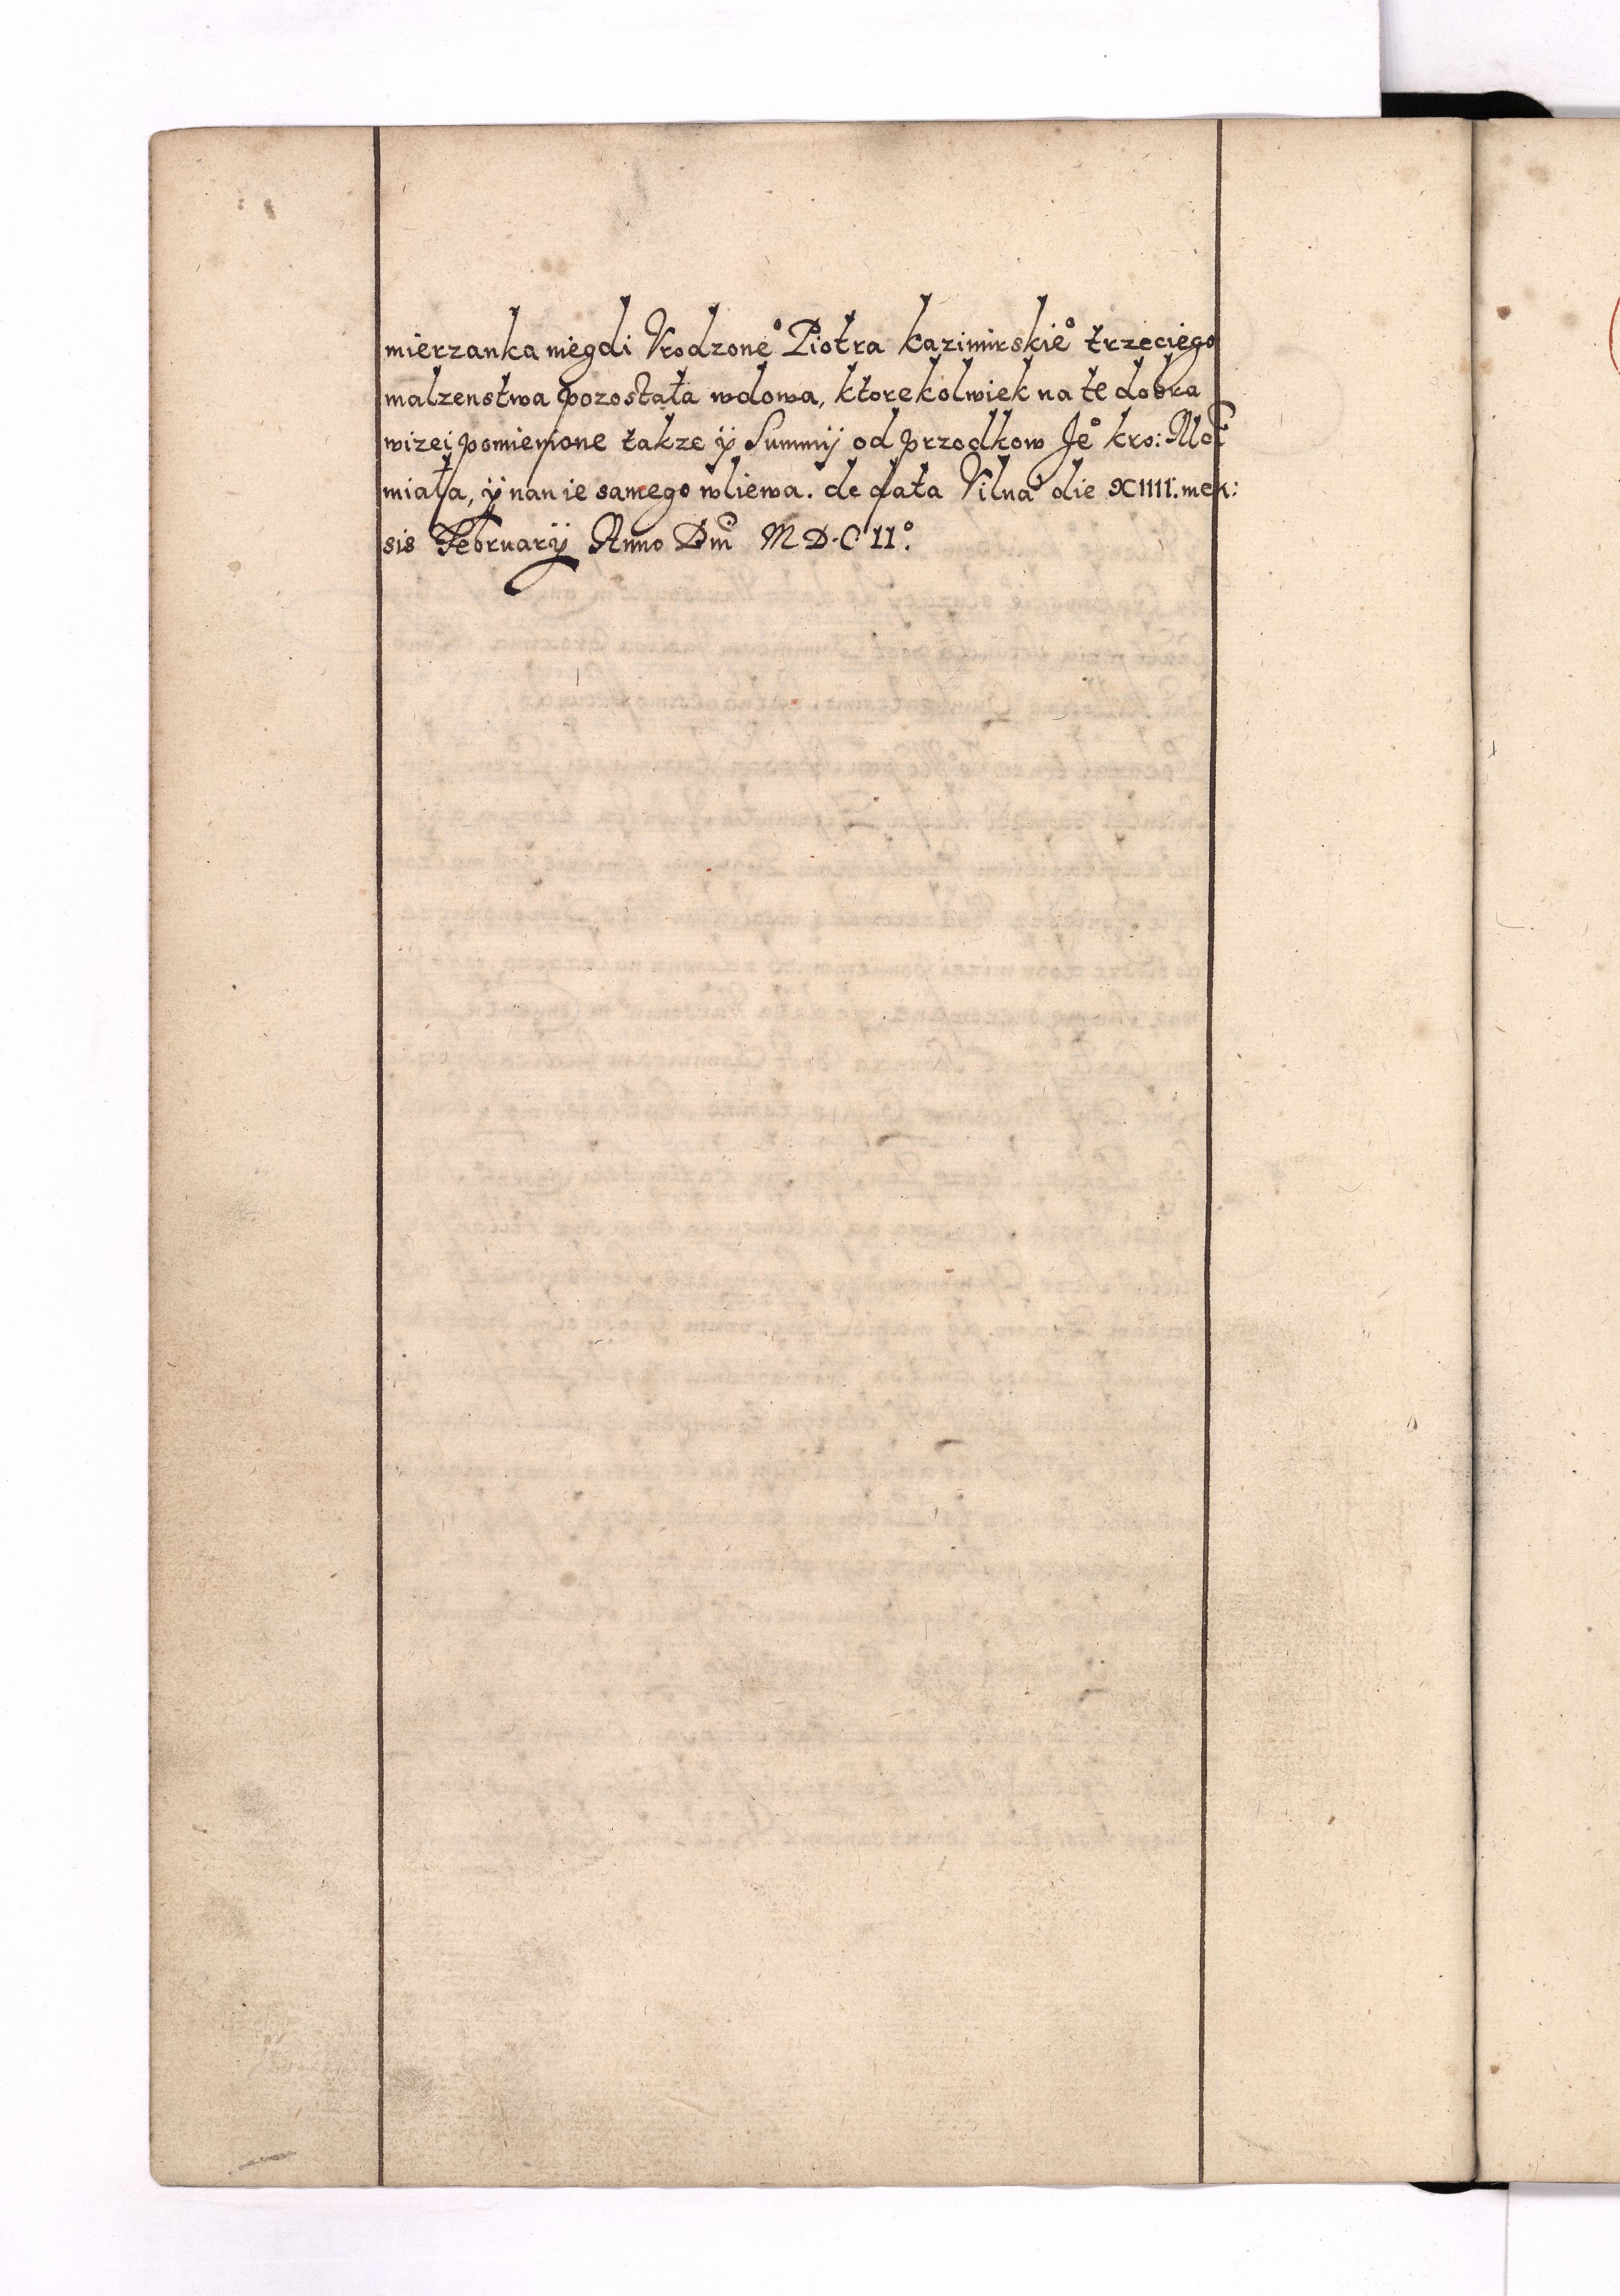 mierzanka niegdi Vrodzoneº Piotra Kazimirskieº trzeciego
malzenstwa pozostała wdowa, ktorekolwiek na te dobra
wizei pomienione takze ÿ Summÿ od przodkow Jeº kro: Mci
miała, ÿ nan ie samego wliewa. de data Vilna die XIIII. men:
sis Februarÿ Anno Dni M D.C II.º